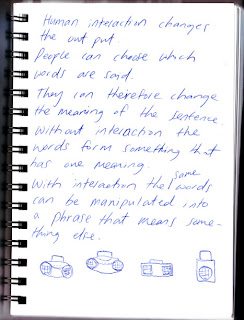 Human interaction changes
the out put
People can choose which
words are said.
They can therefore change
the meaning of the sentence.
Without interaction the
words form something that
has one meaning.
With interaction the same words
can be manipulated into
a phrase that means some-
thing else.